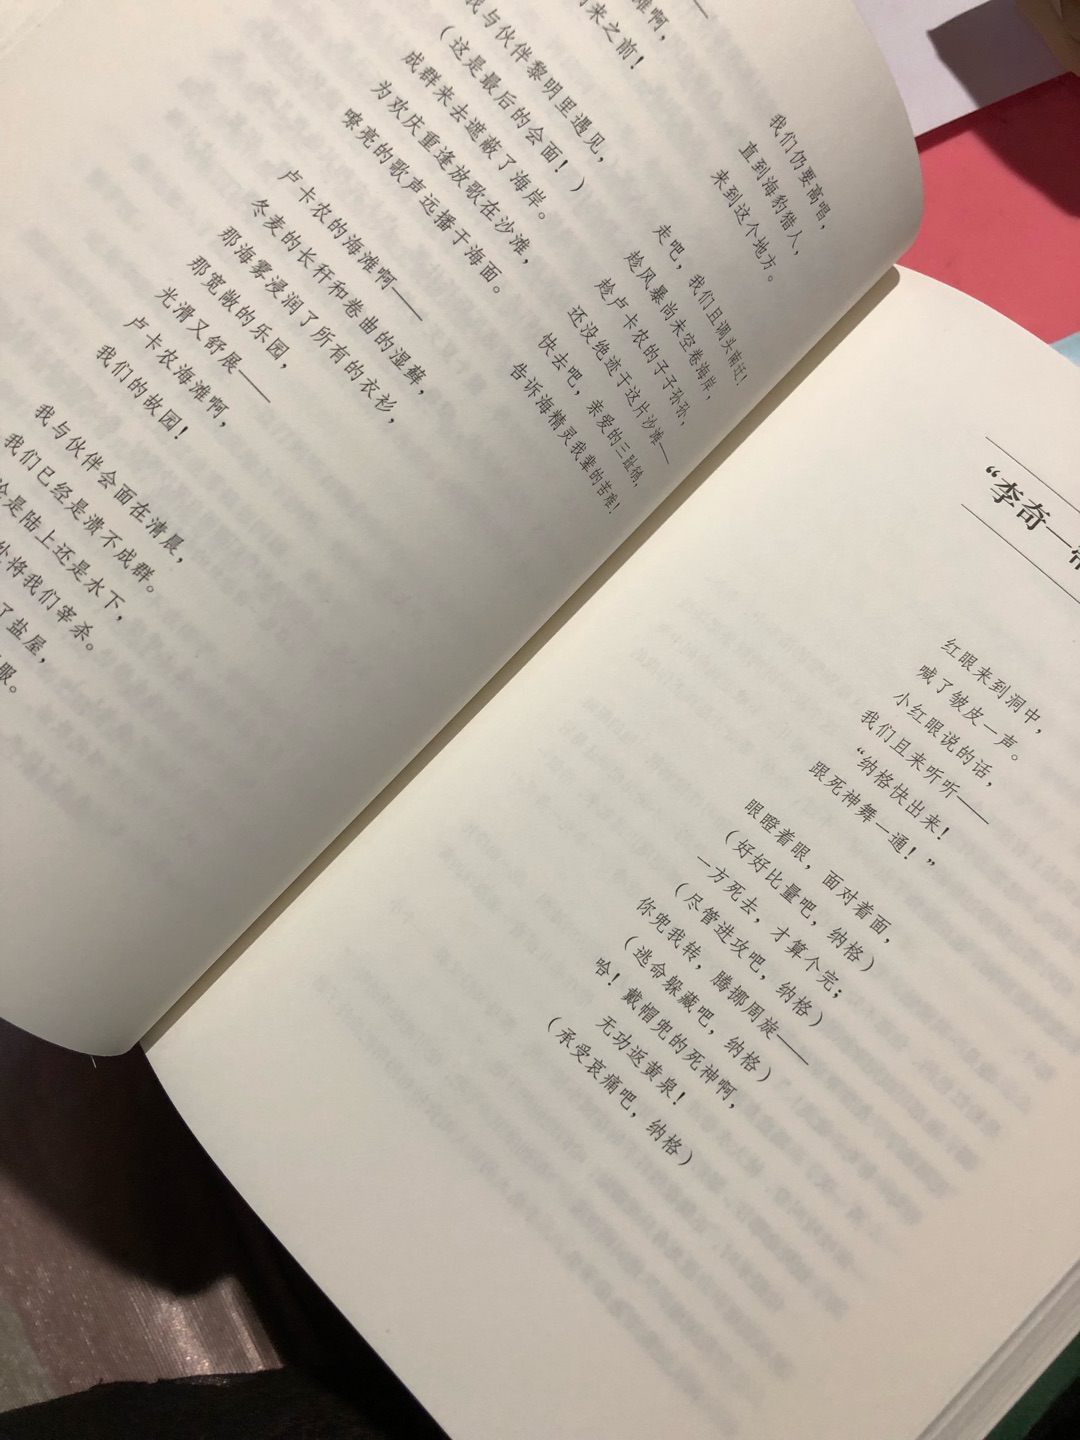 滩啊，
来之前！
我与伙伴黎明里遇见，
（这是最后的会面！）
成群来去遮蔽了海岸。
为欢庆重逢放歌在沙滩，
嘹亮的歌声远播于海面。
卢卡农的海滩啊——
冬麦的长秆和卷曲的湿藓，
那海雾浸润了所有的衣衫，
那宽敞的乐园，
光滑又舒展——
卢卡农海滩啊，
我们的故园！
我与伙伴会面在清晨，
我们已经是溃不成群。
是陆上还是水下，
将我们宰杀。
了盐屋，
服。
我们仍要高唱，
直到海豹猎人，
来到这个地方。
走吧，我们且调头南迁！
趁风暴尚未空卷海岸，
趁卢卡农的子子孙孙，
还没绝迹于这片沙滩——
快去吧，亲爱的三趾鸻，
告诉海精灵我辈的苦难！
“李奇—
红眼来到洞中，
喊了皱皮一声。
小红眼说的话，
我们且来听听——
“纳格快出来！
跟死神舞一通！”
眼瞪着眼，面对着面，
（好好比量吧，纳格）
一方死去，才算个完；
（尽管进攻吧，纳格）
你兜我转，腾挪周旋——
（逃命躲藏吧，纳格）
哈！戴帽兜的死神啊，
无功返黄泉！
（承受哀痛吧，纳格）